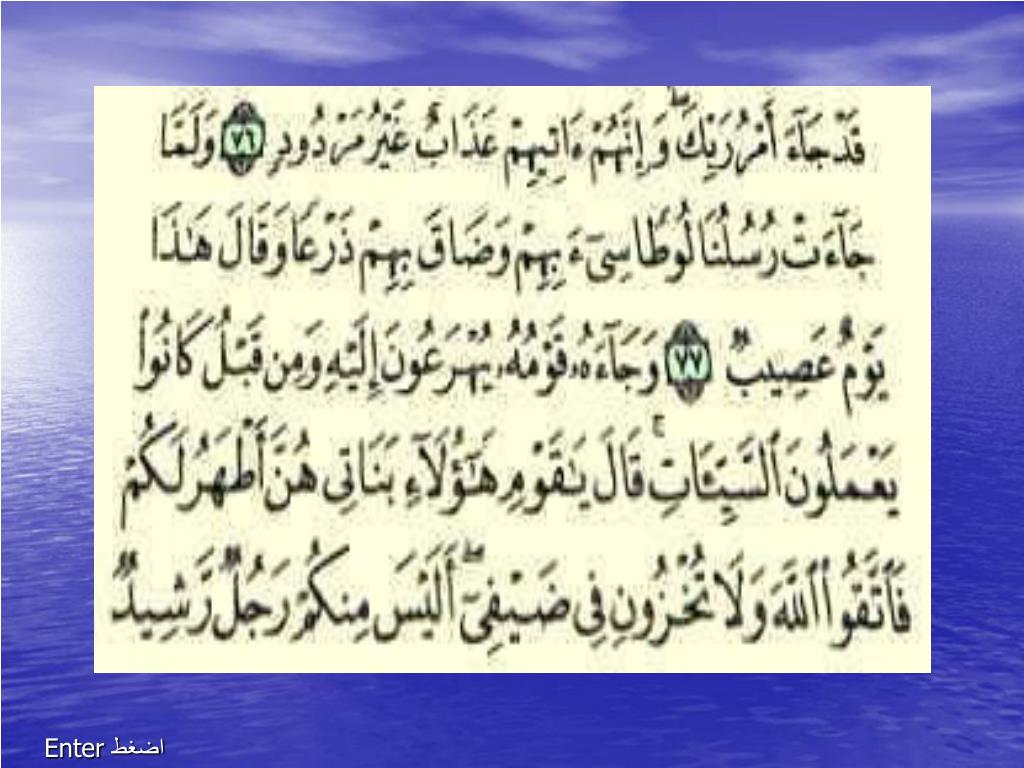 قَدْ جَآءَ أَمْرُ رَبِّكَ ۖ وَإِنَّهُمْ ءَاتِيهِمْ عَذَابٌ غَيْرُ مَرْدُودٍ ٧٦ وَلَمَّا
جَآءَتْ رُسُلُنَا لُوطًا سِىٓءَ بِهِمْ وَضَاقَ بِهِمْ ذَرْعًا وَقَالَ هَـٰذَا
يَوْمٌ عَصِيبٌ ٧٧ وَجَآءَهُۥ قَوْمُهُۥ يُهْرَعُونَ إِلَيْهِ وَمِن قَبْلُ كَانُوا۟
يَعْمَلُونَ ٱلسَّيِّـَٔاتِ ۚ قَالَ يَـٰقَوْمِ هَـٰٓؤُلَآءِ بَنَاتِى هُنَّ أَطْهَرُ لَكُمْ
فَٱتَّقُوا۟ ٱللَّهَ وَلَا تُخْزُونِ فِى ضَيْفِىٓ ۖ أَلَيْسَ مِنكُمْ رَجُلٌ رَّشِيدٌ
اضغط Enter